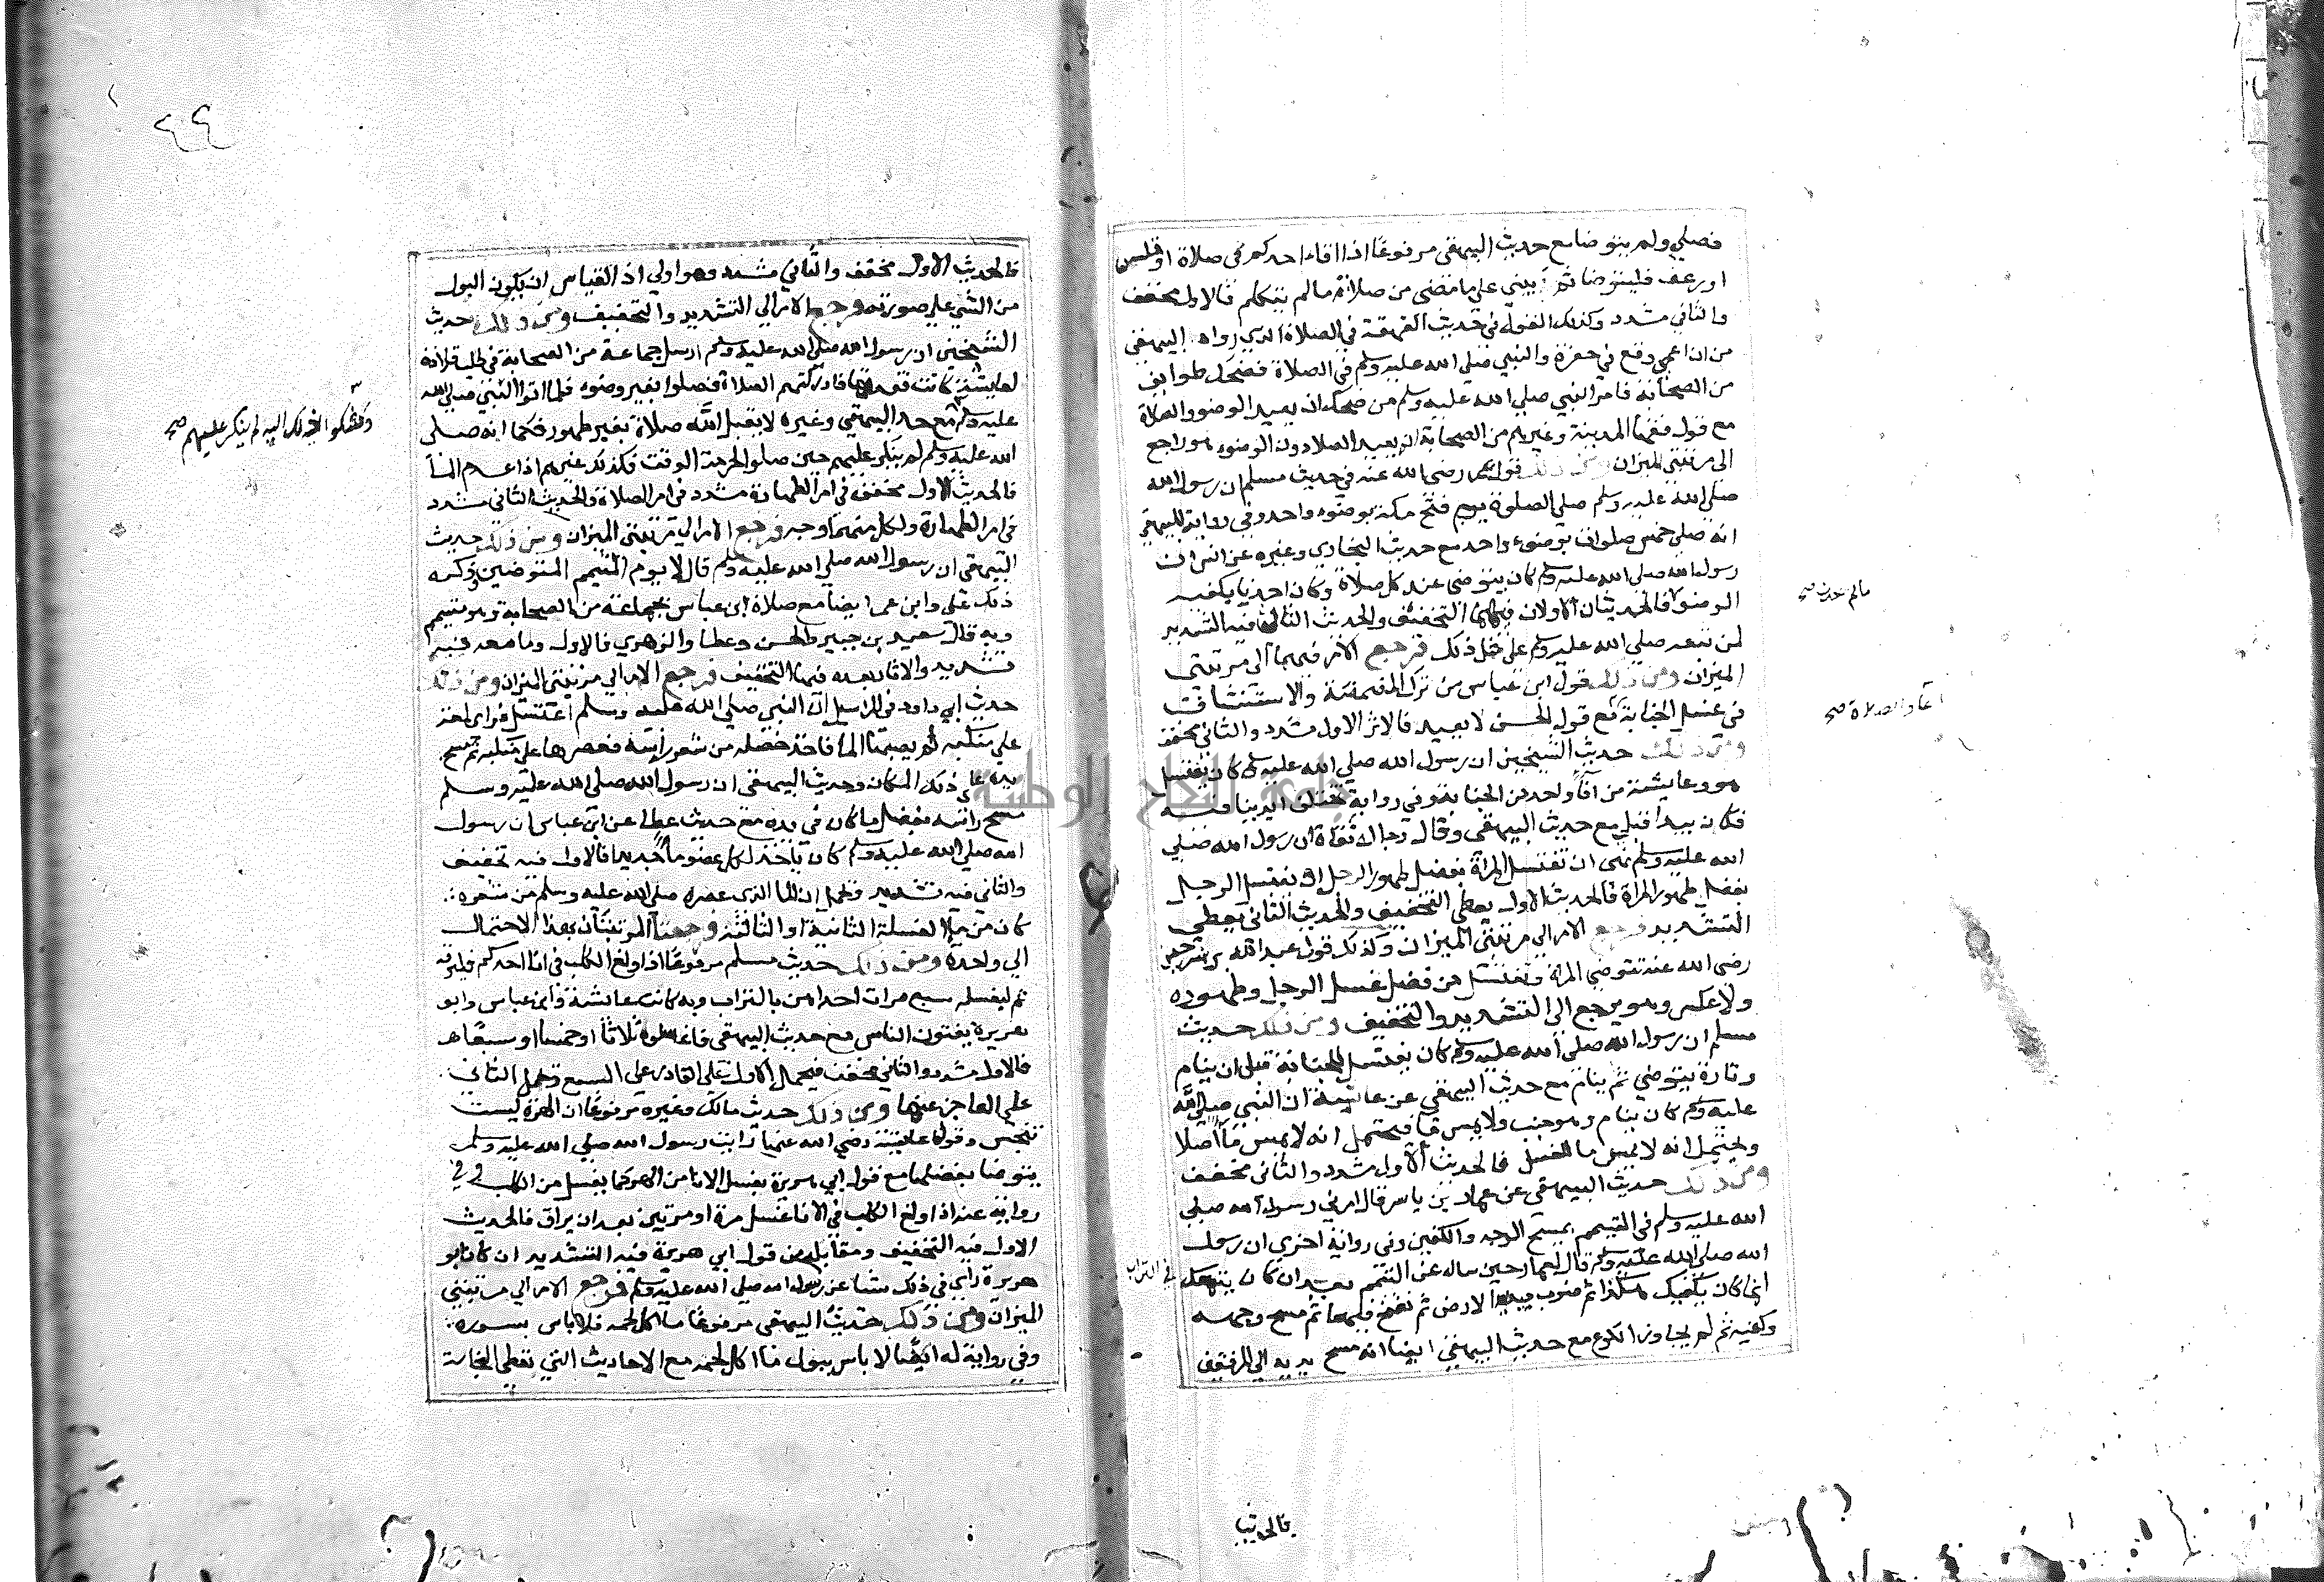 فصلي ولم يتوضا مع حديث البيهقي مرفوعا اذا قاء احدكم في صلاة او قلس
او رعف فليتوضا ثم يبني علي ما مضى من صلاته ما لم يتكلم فالاول مخفف
والثاني مشدد وكذلك القول في حديث القهقهة في الصلاة الذي رواه البيهقي
من ان اعمي وقع في حفرة والنبي صلي الله عليه وسلم في الصلاة فضحك طوايف
من الصحابة فامر النبي صلي الله عليه وسلم من ضحك ان يعيد الوضو والصلاة
مع قول فقها المدينة وغيرهم من الصحابة انه يعيد الصلاة دون الوضوء فهو راجع
الى مرتبتي الميزان ومن ذلك قول عمر رضى الله عنه في حديث مسلم ان رسول الله
صلي الله عليه وسلم صلي الصلوة يوم فتح مكة بوضوء واحد وفي رواية للبيهقي
انه صلي خمس صلوات بوضوء واحد مع حديث البخاري وغيره عن انس ان
رسول الله صلي الله عليه وسلم كان يتوضى عند كل صلاة وكان احدنا يكفيه
الوضوء فالحديثان الاولان فيهما التخفيف والحديث الثالث فيه التشديد
مالم يحدث صح
لمن تبعه صلي الله عليه وسلم على فعل ذلك فرجع الامر فيهما الى مرتبتي
الميزان ومن ذلك قول ابن عباس من ترك المضمضة والاستنشاق
اعاد الصلاة صح
في غسل الجنابة مع قول الحسن لا يعيد فالاثر الاول مشدد والثاني مخفف
ومن ذلك حديث الشيخين ان رسول الله صلي الله عليه وسلم كان يغتسل
هو وعايشة من اناء واحد من الجنابة وفي رواية تختلف ايدينا فيه
فكان يبدا قبلي مع حديث البيهقي وقال رجاله ثقاة ان رسول الله صلي
الله عليه وسلم نهى ان تغتسل المراة بفضل طهور الرجل او يغتسل الرجل
بفضل طهور المراة فالحديث الاول يعطي التخفيف والحديث الثاني يعطي
التشديد فرجع الامر الي مرتبتي الميزان وكذلك قول عبد الله بن سرجس
رضي الله عنه تتوضي المراة وتغتسل من فضل غسل الرجل وطهوره
ولا عكس وهو يرجع الى التشديد والتخفيف ومن ذلك حديث
مسلم ان رسول الله صلي الله عليه وسلم كان يغتسل للجنابة قبل ان ينام
وتارة يتوضي ثم ينام مع حديث البيهقي عن عايشة ان النبي صلي الله
عليه وسلم كان ينام وهو جنب ولا يمس ما فيحتمل انه لا يمس ماء اصلا
ويحتمل انه لا يمس ما للغسل فالحديث الاول مشدد والثاني مخفف
ومن ذلك حديث البيهقي عن عمار بن ياسر قال امرني رسول الله صلي
الله عليه وسلم في التيمم بمسح الوجه والكفين وفي رواية اخري ان رسول
الله صلي الله عليه وسلم قال لعمار حين ساله عن التيمم بعد ان كان يتمعك في التراب
انما كان يكفيك هكذا ثم ضرب بيديه الارض ثم نفخ فيهما ثم مسح وجهه
وكفيه ثم لم يجاوز الكوع مع حديث البيهقي ايضا انه مسح يديه الي المرفقين
فالحديث
٤٤
فالحديث الاول مخفف والثاني مشدد وهو اولي اذ القياس ان يكون البول
من الشي علي صورته فرجع الامر الي التشديد والتخفيف ومن ذلك حديث
الشيخين ان رسول الله صلي الله عليه وسلم ارسل جماعة من الصحابة في طلب قلادة
لعايشة كانت فقدتها فادركتهم الصلاة فصلوا بغير وضوء فلما اتوا النبي صلي الله
وشكوا ذلك اليه لم ينكر عليهم صح
عليه وسلم مع حديث البيهقي وغيره لا يقبل الله صلاة بغير طهور فكما انه صلي
الله عليه وسلم لم ينكر عليهم حين صلوا لحرمة الوقت فكذلك غيرهم اذا عدم الما
فالحديث الاول مخفف في امر الطهارة مشدد في امر الصلاة والحديث الثاني مشدد
في امر الطهارة ولكل منهما وجه فرجع الامر الي مرتبتي الميزان ومن ذلك حديث
البيهقي ان رسول الله صلي الله عليه وسلم قال لا يوم المتيمم المتوضين وكره
ذلك علي وابن عمر ايضا مع صلاة ابن عباس بجماعة من الصحابة وهو متيمم
وبه قال سعيد بن جبير والحسن وعطا والزهري فالاول وما معه فيه
تشديد والاثار بعده فيها التخفيف فرجع الامر الي مرتبتي الميزان ومن ذلك
حديث ابي داود في المراسيل ان النبي صلي الله عليه وسلم اغتسل فراى لمعة
علي منكبه لم يصبها الما فاخذ خصلة من شعر راسه فعصرها على منكبه ثم مسح
يده على ذلك المكان وحديث البيهقي ان رسول الله صلي الله عليه وسلم
مسح راسه بفضل ما كان في يده مع حديث عطا عن ابن عباس ان رسول
الله صلي الله عليه وسلم كان ياخذ لكل عضو ماء جديدا فالاول فيه تخفيف
والثاني فيه تشديد ويحمل ان الما الذي عصره صلي الله عليه وسلم من شعره
كان من ما الغسلة الثانية او الثالثة فرجعت المرتبتان بهذا الاحتمال
الي واحدة ومن ذلك حديث مسلم مرفوعا اذا ولغ الكلب في انا احدكم فليرقه
ثم ليغسله سبع مرات احداهن بالتراب وبه كانت عايشة وابن عباس وابو
هريرة يفتون الناس مع حديث البيهقي فاغسلوه ثلاثا او خمسا او سبعا
فالاول مشدد والثاني مخفف فيحمل الاول على القادر على السبع ويحمل الثاني
علي العاجز عنها ومن ذلك حديث مالك وغيره مرفوعا ان الهرة ليست
بنجس وقول عايشة رضي الله عنها رايت رسول الله صلي الله عليه وسلم
يتوضا بفضلها مع قول ابي هريرة يغسل الانا من الهر كما يغسل من الكلب وفي
رواية عنه اذا ولغ الكلب في الانا غسل مرة او مرتين بعد ان يراق فالحديث
الاول فيه التخفيف ومقابله من قول ابي هريرة فيه التشديد ان كان ابو
هريرة راي في ذلك شيا عن رسول الله صلي الله عليه وسلم فرجع الامر الي مرتبتي
الميزان ومن ذلك حديث البيهقي مرفوعا ما اكل لحمه فلا باس بسوره
وفي رواية له ايضا لا باس ببول ما اكل لحمه مع الاحاديث التي تعطي النجاسة
جامعة النجاح الوطنية